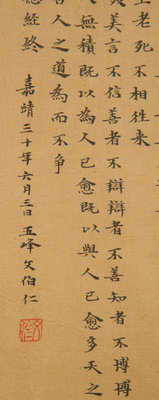 老死不相往來
美言不信善者不辯辯者不善知者不博博
無積既以為人已愈既以與人已愈多天之
人之道為而不爭
經終
嘉靖三十年六月三日五峰文伯仁